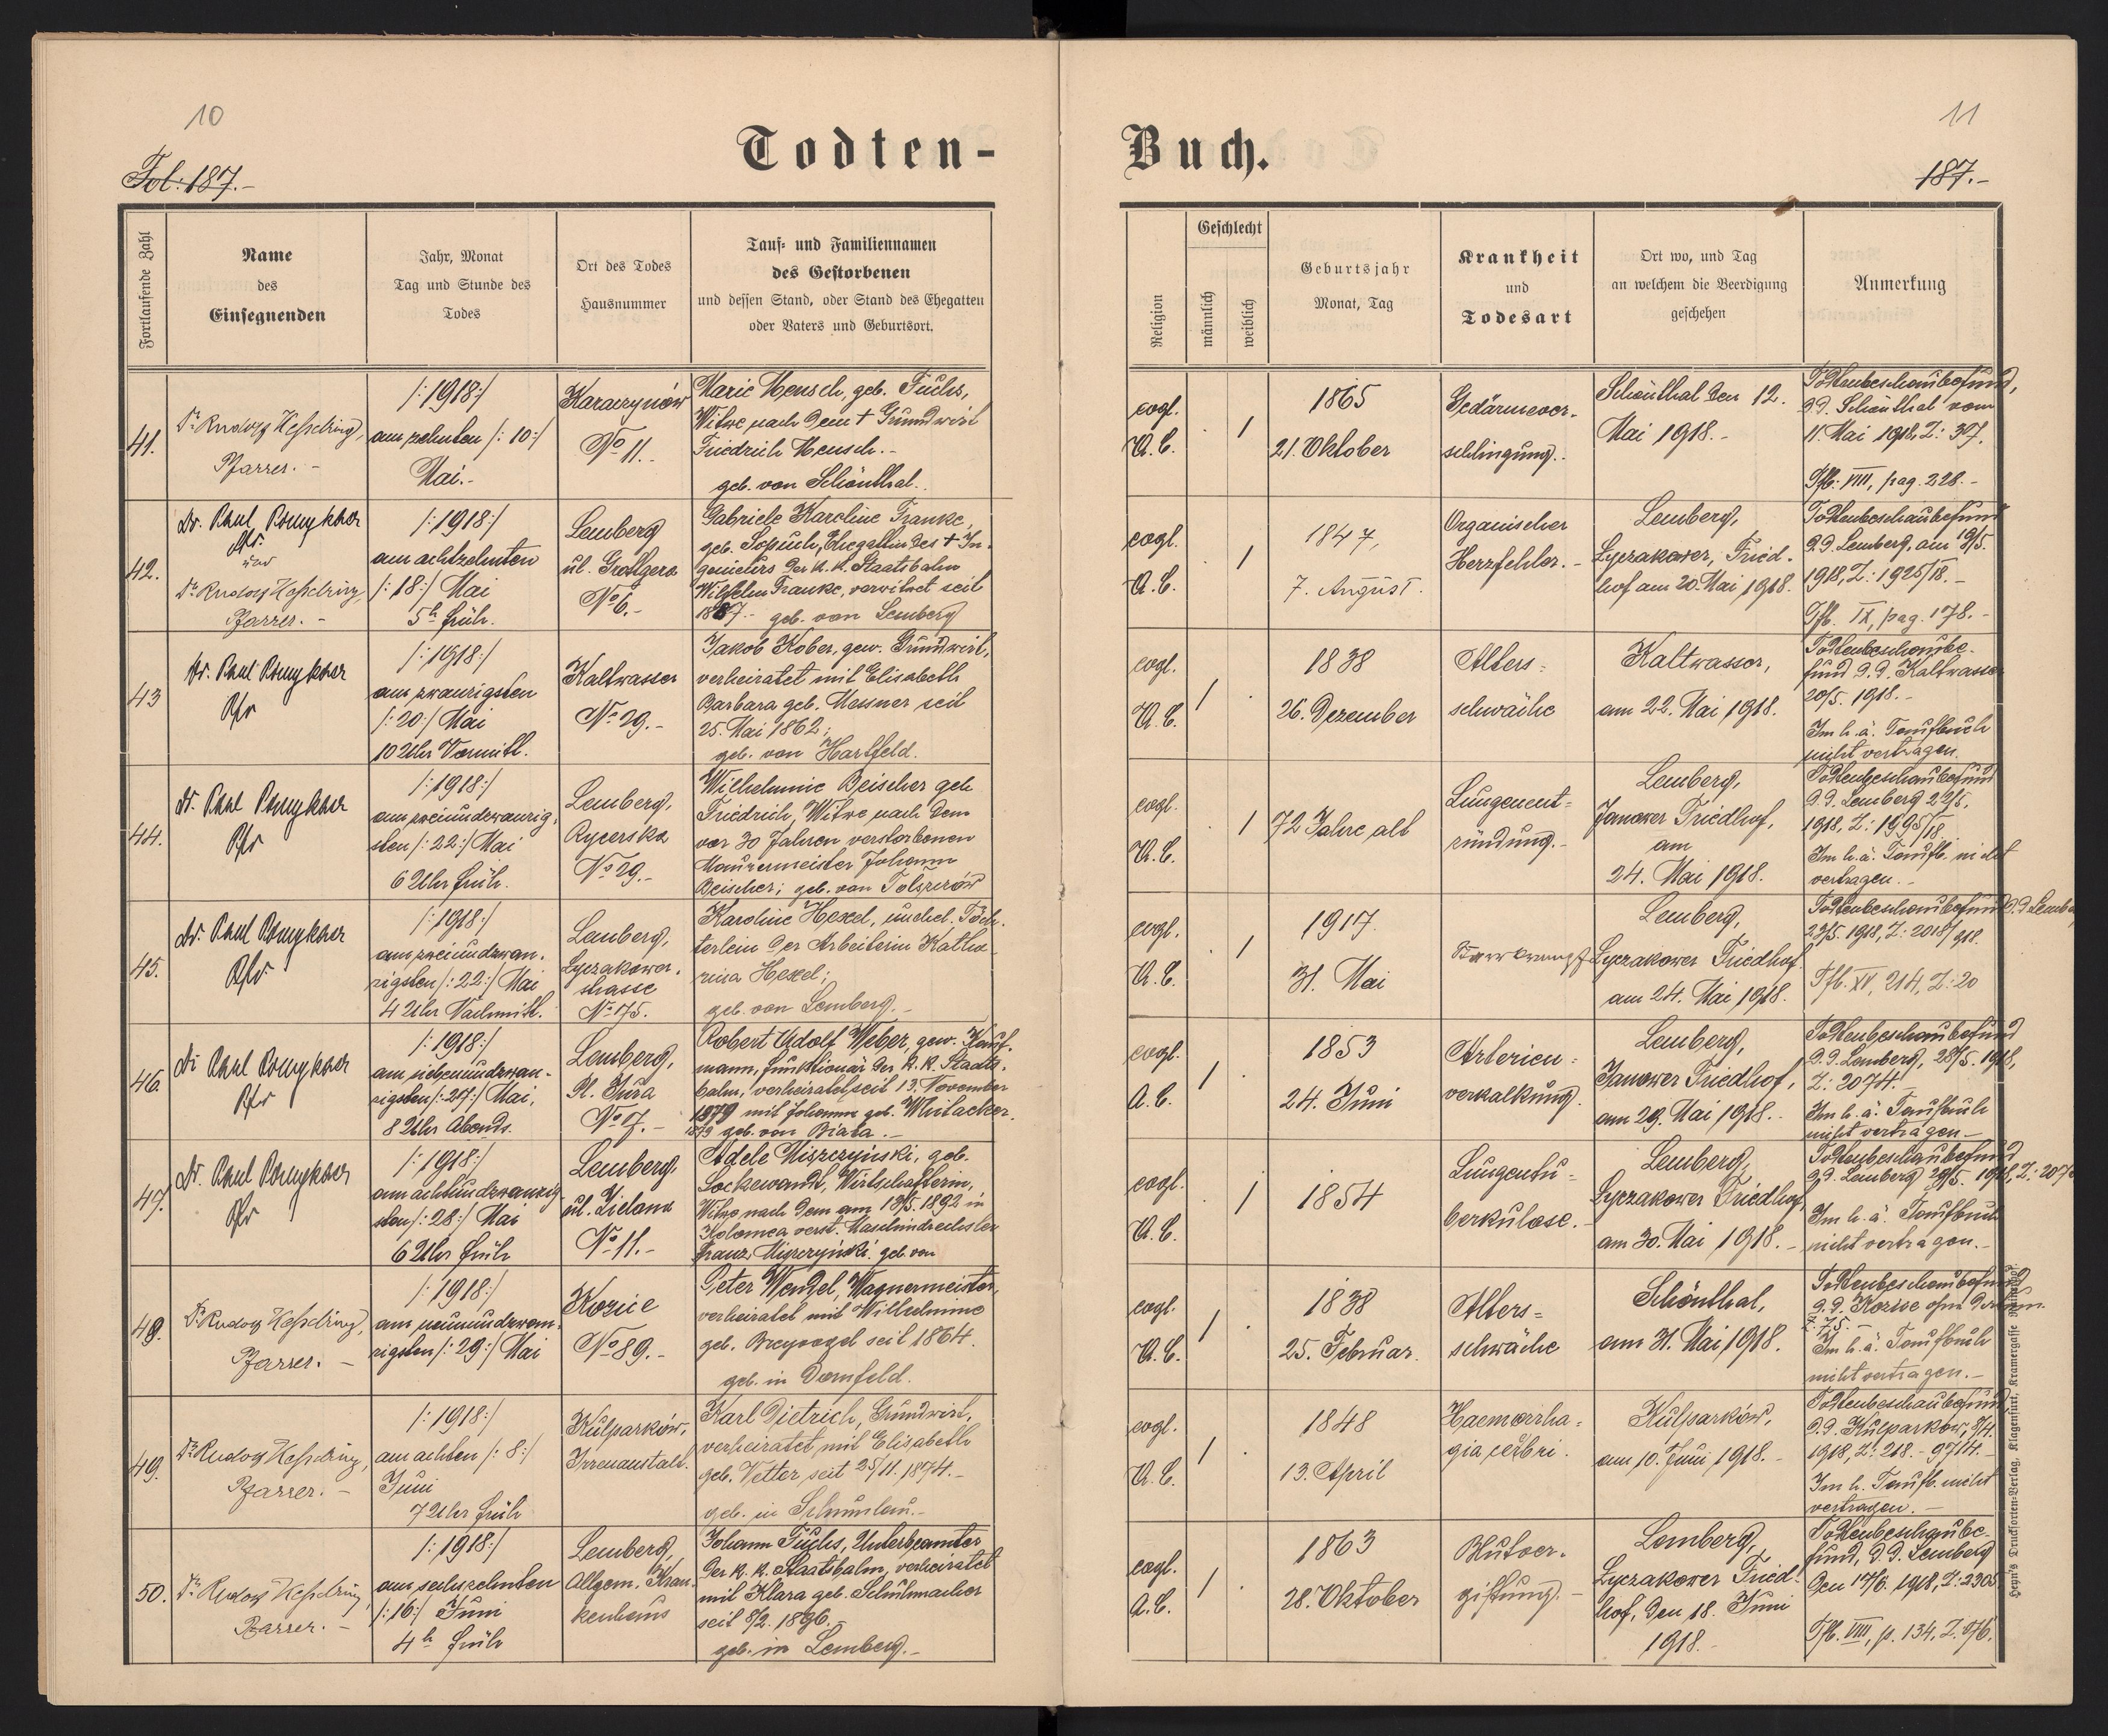 10
Fol: 187.-
Todten-
Fortlaufende Zahl
Name
des
Einsegnenden
Jahr, Monat
Tag und Stunde des
Todes
Ort des Todes
Hausnummer
Tauf- und Familiennamen
des Gestorbenen
und dessen Stand, oder Stand des Ehegatten
oder Vaters und Geburtsort.
41.
Dr. Rudolf Kesselring,
Pfarrer. -
/:1918:/
am zehnten /:10:/
Mai.-
Karaczynów
No 11.-
Marie Mensch, geb. Fuchs,
Witwe nach dem + Grundwirt
Friedrich Mensch.-
geb. von Schönthal.
42.
Dr. Paul
und
Dr. Rudolf Kesselring,
Pfarrer. -
/:1918:/
am achtzehnten
/:18:/ Mai
5h früh.
Lemberg
ul.
No 6.-
Gabriele Karoline Franke,
geb. Ehegattin des + In-
genieurs der k. k. Staatsbahn
Wilhelm Franke, verwitwet seit
1887.- geb. von Lemberg
43
Dr. Paul
Pfr
/:1918:/
am zwanzigsten
/:20:/ Mai
10 Uhr Vormitt.
Kaltwasser
No 29.-
Jakob Kober, gew. Grundwirt,
verheiratet mit Elisabeth
Barbara geb. Messner seit
25. Mai 1862;
geb. von Hartfeld.
44.
Dr. Paul
Pfr
/:1918:/
am zweiundzwanzig-
sten /:22:/ Mai
6 Uhr früh.
Lemberg,
Rycerska
No 29.-
Wilhelmine Beischer geb.
Friedrich, Witwe nach dem
vor 30 Jahren verstorbenen
Maurermeister Johann
Beischer; geb. von
45.
Dr. Paul
Pfr
/:1918:/
am zweiundzwan-
zigsten /:22:/ Mai
4 Uhr Nachmitt.
Lemberg,
Lyczakower-
strasse
No 75.
Karoline Hexel, unehel. Töch-
terlein der Arbeiterin Katha-
rina Hexel;
geb. von Lemberg.-
46.
Dr Paul
Pfr
/:1918:/
am siebenundzwan-
zigsten /:27:/ Mai,
8 Uhr Abends.
Lemberg,
Pl. Jura
No 7.-
Robert Adolf Weber, gew. Kauf-
mann, Funktionär der k. k. Staats-
bahn, verheiratet seit 13. November
1879 mit Johanna geb.
1879 geb. von Biała.-
47.
Dr. Paul
Pfr
/:1918:/
am achtundzwanzig-
sten /:28:/ Mai
6 Uhr früh
Lemberg,
ul. Zielona
No 11.-
Adele Miszczyński, geb.
Wirtschafterin,
Witwe nach dem am 13/5. 1892 in
Kolomea verst. Maschindrechsler
Franz Miszczyński. geb. von
48.
Dr. Rudolf Kesselring,
Pfarrer. -
/:1918:/
am neunundzwan-
zigsten /:29:/ Mai
Kozice
No 89.-
Peter Wendel, Wagnermeister,
verheiratet mit Wilhelmine
geb. Breyvogel seit 1864.
geb. in Dornfeld.
49.
Dr. Rudolf Kesselring,
Pfarrer. -
/:1918:/
am achten /:8:/
Juni
7 Uhr früh
Kulparków,
Irrenanstalt.
Karl Dietrich, Grundwirt,
verheiratet mit Elisabeth
geb. Vetter seit 25/11. 1874.-
geb. in
50.
Dr. Rudolf Kesselring
Pfarrer. -
/:1918:/
am sechszehnten
/:16:/ Juni
4h früh
Lemberg,
Allgem. Kran-
kenhaus
Johann Fuchs, Unterbeamter
der k. k. Staatsbahn, verheiratet
mit Klara geb. Schuhmacher
seit 8/2. 1896.-
geb. in Lemberg.-
11
187.-
Buch.
Religion
Geschlecht
männlich
weiblich
Geburtsjahr
Monat, Tag
Krankheit
und
Todesart
Ort wo, und Tag
an welchem die Beerdigung
geschehen
Anmerkung
evgl.
A. C.
. /
1865
21. Oktober
Gedärmever-
schlingung.
Schönthal den 12.
Mai 1918.-
Todtenbeschaubefund,
d.d. Schönthal vom
11. Mai 1918, Z: 37.
Tfb. VIII, pag. 228.-
evgl.
A. C.
. /
1847,
7. August.
Organischer
Herzfehler.-
Lemberg,
Lyczakower, Fried-
hof am 20. Mai 1918.
Todtenbeschaubefund
d.d. Lemberg, am 19/5.
1918, Z: 1925/18.-
Tfb. IX, pag. 178.-
evgl.
A. C.
/ .
1838
26. Dezember
Alters-
schwäche
Kaltwasser,
am 22. Mai 1918.
Todtenbeschaube-
fund d.d. Kaltwasser
20/5. 1918.-
Im h. ä. Taufbuch
nicht vertragen.
evgl.
A. C.
. /
72 Jahre alt
Lungenent-
zündung.-
Lemberg,
Janower Friedhof,
am
24. Mai 1918.
Todtenbeschaubefund
d.d. Lemberg 22/5.
1918, Z: 1995/18.
Im h. ä. Taufb. nicht
vertragen.-
evgl.
A. C.
. /
1917.
31. Mai
Lemberg,
Lyczakower Friedhof
am 24. Mai 1918.
Todtenbeschaubefund d.d Lemberg
23/5. 1918, Z: 2018/918.
Tfb. XV, 214, Z: 20
evgl.
A. C.
/ .
1853
24. Juni
Arterien-
verkalkung.
Lemberg,
Janower Friedhof,
am 29. Mai 1918.-
Todtenbeschaubefund
d.d. Lemberg, 28/5. 1918,
Z: 2074.-
Im h. ä. Taufbuch
nicht vertragen.-
evgl.
A. C.
. /
1854
Lungentu-
berkulose.-
Lemberg,
Lyczakower Friedhof,
am 30. Mai 1918.-
Todtenbeschaubefund
d.d. Lemberg 29/5. 1918,
Im h. ä. Taufbuch
nicht vertragen.-
evgl.
A. C.
/ .
1838
25. Februar.
Alters-
schwäche
Schönthal,
am 31. Mai 1918.
Todtenbeschaubefund
d.d. Kozice ohne Datum.
Z: 75.-
Im h. ä. Taufbuch
nicht vertragen.-
evgl.
A. C.
/ .
1848
13. April
Haemorrha-
gia cerebri.
Kulparków,
am 10. Juni 1918.-
Todtenbeschaubefund
d.d. Kulparków,
1918, Z: 218.-
Im h. Taufb. nicht
vertragen.-
evgl.
A. C.
/ .
1863
28. Oktober
Blutver-
giftung.-
Lemberg,
Lyczakower Fried-
hof, den 18. Juni
1918.-
Todtenbeschaube-
fund, d.d. Lemberg
den 17/6. 1918,
Tfb. VIII, p. 134, Z. 76.